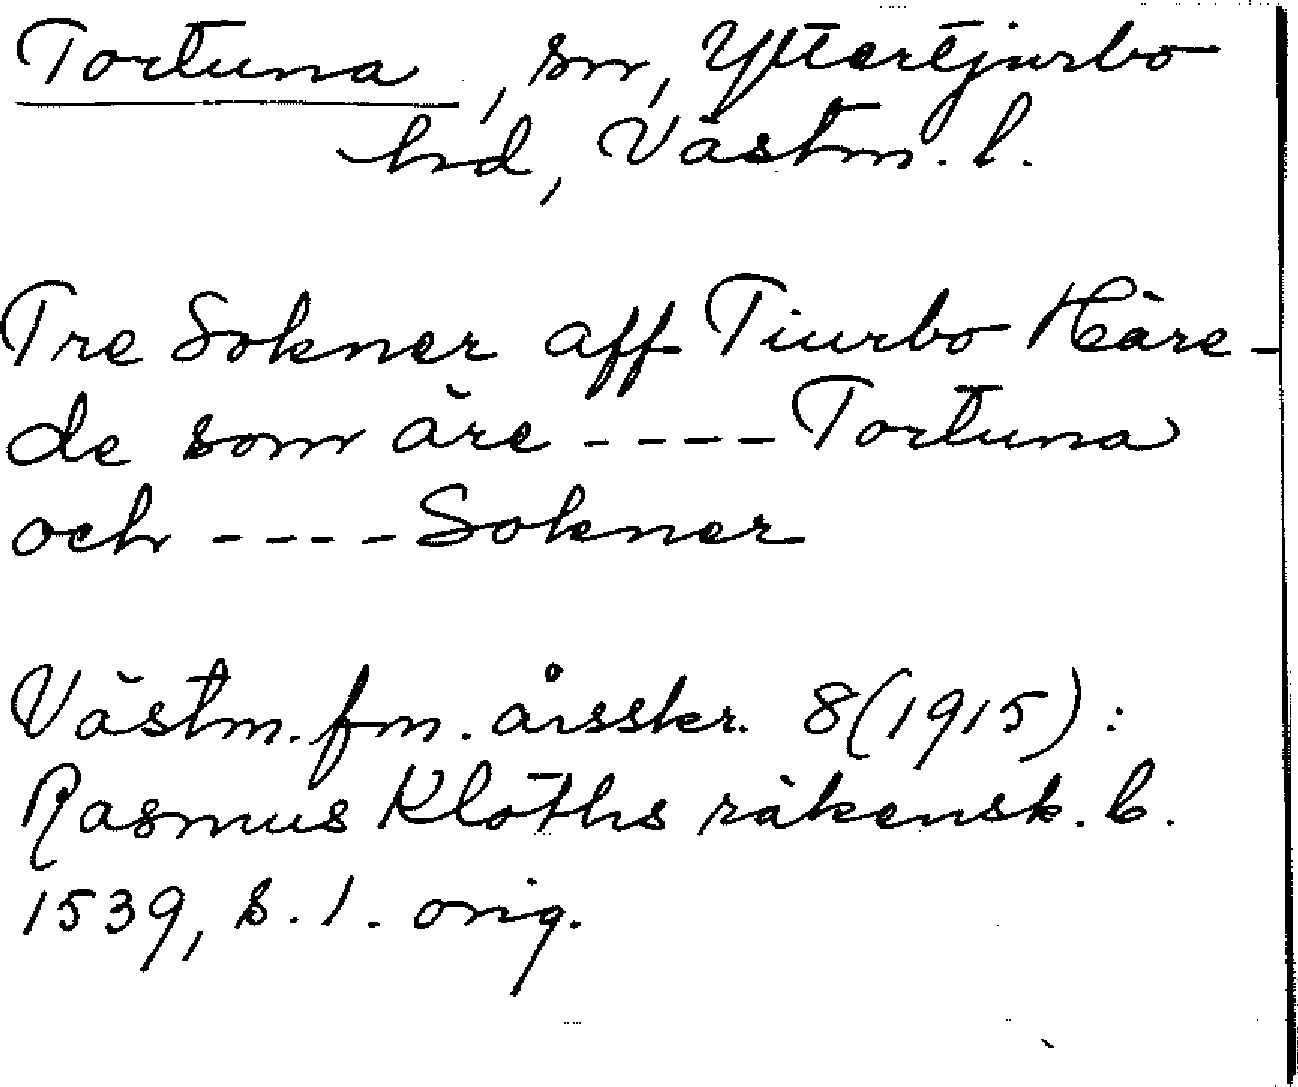 Tortuna, sn, Yttertjurbo
hd, Västm. l.
Tre Sokner aff Tiurbo Häre-
de som äre ---- Tortuna
och ---- Sokner
Västm. fm. årsskr. 8(1915):
Rasmus Klöths räkensk. b.
1539, s. 1. orig.